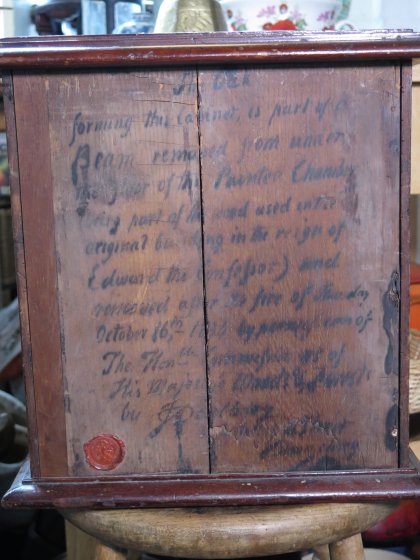 The Oak
forming this Cabinet, is part of a
Beam removed from under
the floor of the Painted Chamber
being part of the wood used in the
original building in the reign of
Edward the Confessor) and
removed after the fire of Thursday
October 16th by permission of
The Honble Commissioners of
His Majesties Woods & Forests
by